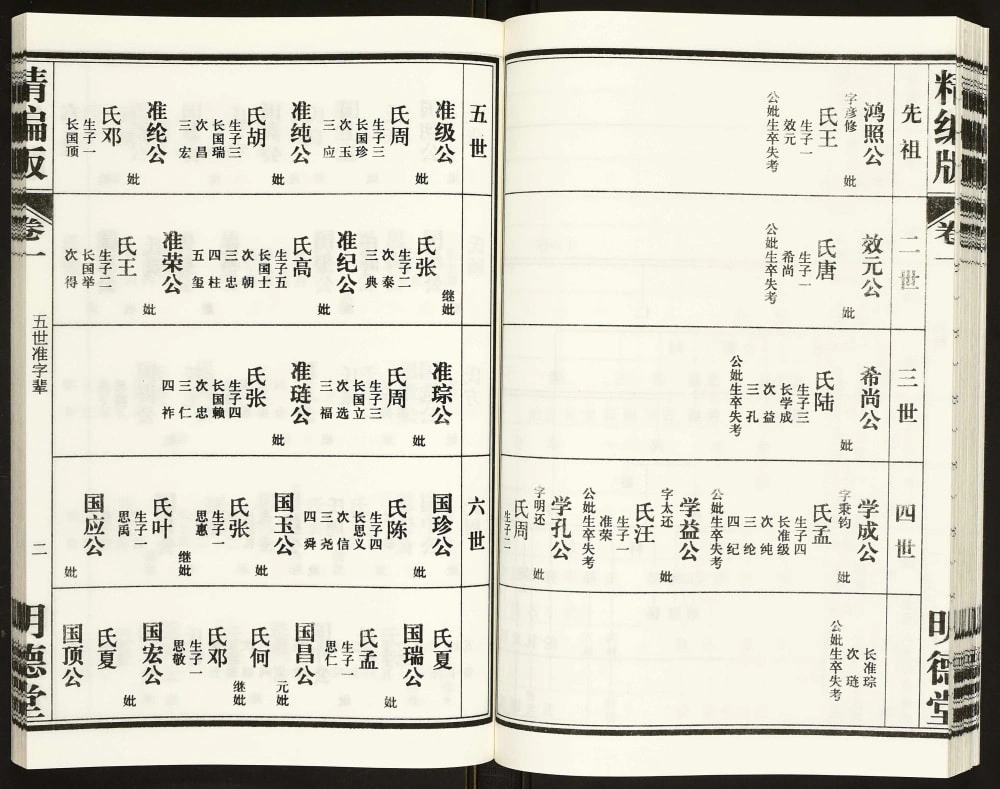 精编版
卷一
明德堂
先祖
鸿照公
字彦修
妣
氏王
生子一
效元
公妣生卒失考
二世
效元公
妣
氏唐
生子一
希尚
公妣生卒失考
三世
希尚公
妣
氏陆
生子三
长学成
次益
三孔
公妣生卒失考
四世
学成公
字秉钧
妣
氏孟
生子四
长准级
次纯
三纶
四纪
公妣生卒失考
学益公
字太还
妣
氏汪
生子一
准荣
公妣生卒失考
学孔公
字明还
妣
氏周
生子二
长准琮
次琏
公妣生卒失考
五世
准级公
妣
氏周
生子三
长国珍
次玉
三应
准纯公
妣
氏胡
生子三
长国瑞
次昌
三宏
准纶公
妣
氏邓
生子一
长国顶
继妣
氏张
生子二
次泰
三典
准纪公
妣
氏高
生子五
长国士
次朝
三忠
四柱
五玺
准荣公
妣
氏王
生子二
长国举
次得
准琮公
妣
氏周
生子三
长国立
次选
三福
准琏公
妣
氏张
生子四
长国赖
次忠
三仁
四祚
六世
国珍公
妣
氏陈
生子四
长思义
次信
三尧
四舜
国玉公
妣
氏张
生子一
思惠
继妣
氏叶
生子一
思禹
国应公
妣
氏夏
国瑞公
妣
氏孟
生子一
思仁
国昌公
元妣
氏何
继妣
氏邓
生子一
思敬
国宏公
妣
氏夏
国顶公
精编版
卷一
五世准字辈
二
明德堂